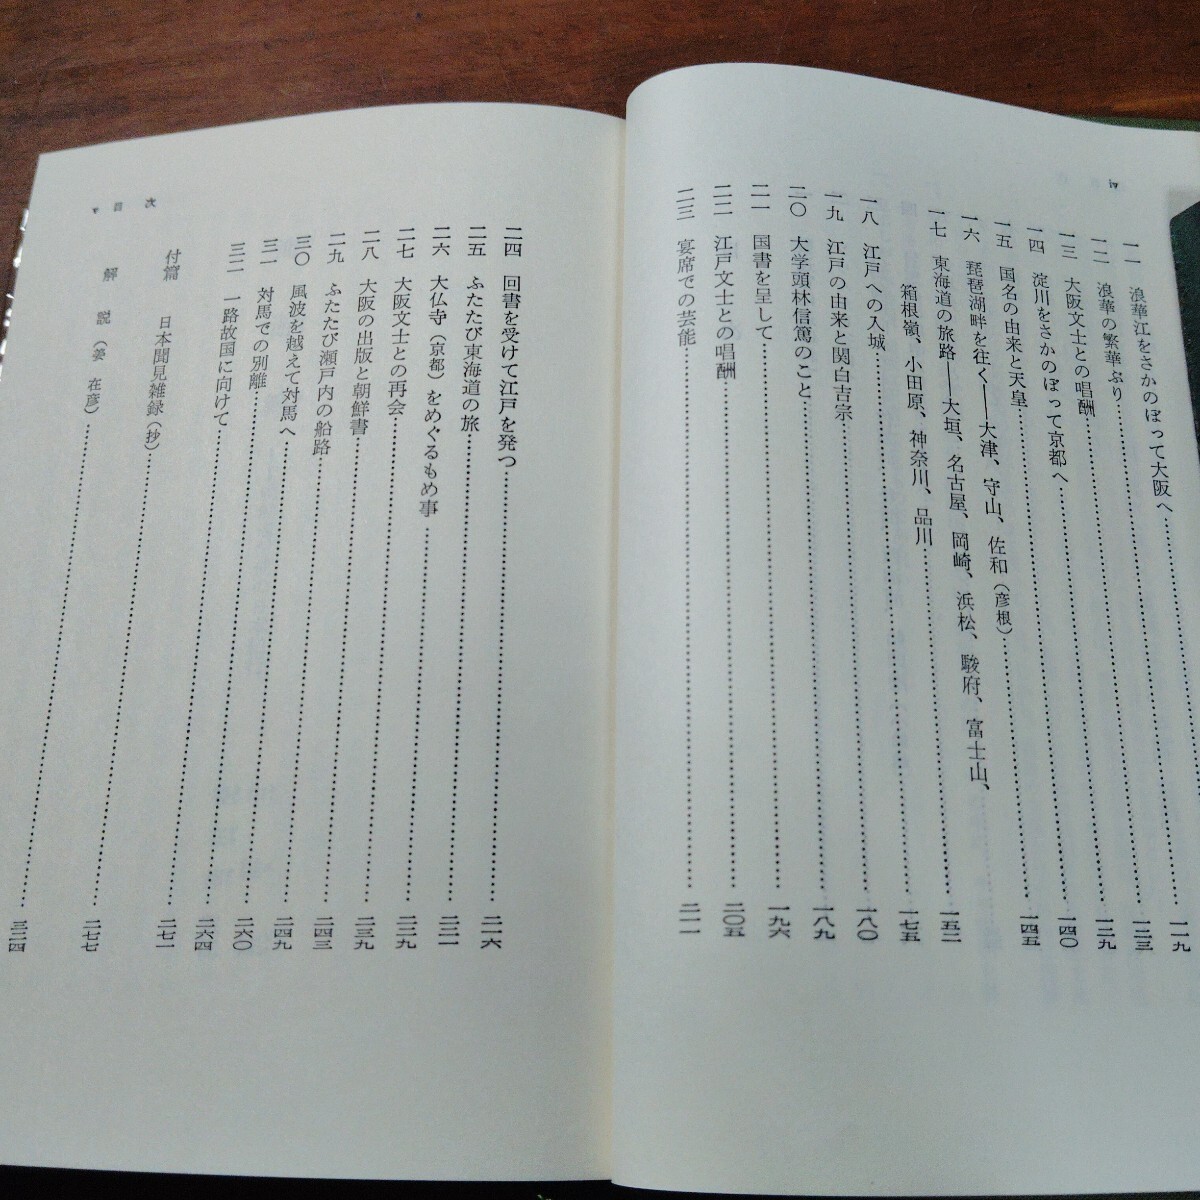 iv
一一　浪華江をさかのぼって大阪へ
一二　浪華の繁華ぶり……一一九
一三　大阪文士との唱酬……一二三
一四　淀川をさかのぼって京都へ……一二九
一五　国名の由来と天皇……一四〇
一六　琵琶湖畔を往く――大津、守山、佐和(彦根)……一四五
一七　東海道の旅路――大垣、名古屋、岡崎、浜松、駿府、富士山、
箱根嶺、小田原、神奈川、品川……一五二
一八　江戸への入城……一七五
一九　江戸の由来と関白吉宗……一八〇
二〇　大学頭林信篤のこと……一八九
二一　国書を呈して……一九六
二二　江戸文士との唱酬……二〇五
二三　宴席での芸能……二一一
二四　回書を受けて江戸を発つ……二一六
二五　ふたたび東海道の旅……二二一
二六　大仏寺(京都)をめぐるもめ事……二二九
二七　大阪文士との再会……二三九
二八　大阪の出版と朝鮮書……二四三
二九　ふたたび瀬戸内の船路……二四九
三〇　風波を越えて対馬へ……二六〇
三一　対馬での別離……二六四
三二　一路故国に向けて……二七一
付篇　日本聞見雑録(抄)……二七七
解　説(姜　在彦)……三二四
目　次　v